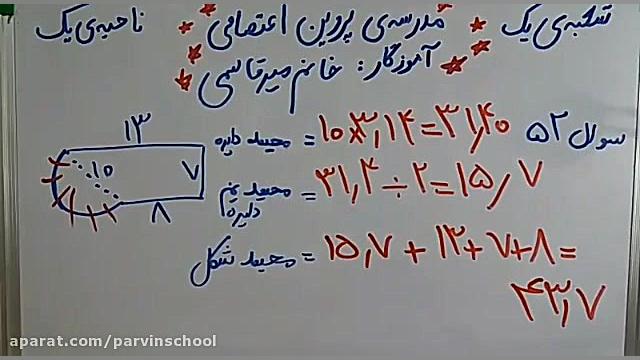 شعبه‌ی یک * مدرسه‌ی پروین اعتصامی * ناحیه‌ی یک
آموزگار: خانم میرقاسمی
سوال ۵۲
محیط دایره = ۱۰×۳٫۱۴=۳۱٫۴۰
محیط نیم دایره = ۳۱٫۴÷۲=۱۵٫۷
محیط شکل = ۱۵٫۷+۱۳+۷+۸=
۴۳٫۷
۱۳
۱۰
۷
۸
aparat.com/parvinschool